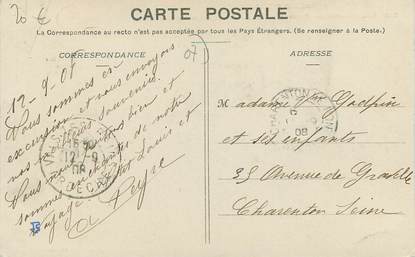 20 €
CARTE POSTALE
La Correspondance au recto n'est pas acceptée par tous les Pays Étrangers. (Se renseigner à la Poste.)
CORRESPONDANCE
ADRESSE
12-9-08
Nous sommes en
excursion et nous envoyons
nos meilleurs souvenirs.
Nous nous portons bien et
sommes enchantés de notre
voyage. Louis et
Peyre
M adame Vve Godfrin
et ses enfants
35 Avenue de Gravelle
Charenton Seine
CHARENTON
08
12-9
08